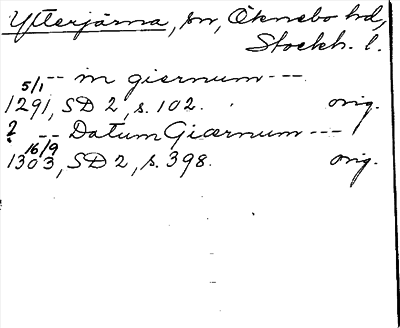 Ytterjärna, sn, Öknebo hd,
Stockh. l.
5/1 -- in giernum ---
1291, SD 2, s. 102. orig.
? -- Datum Giærnum ---
16/9
1303, SD 2, s. 398. orig.